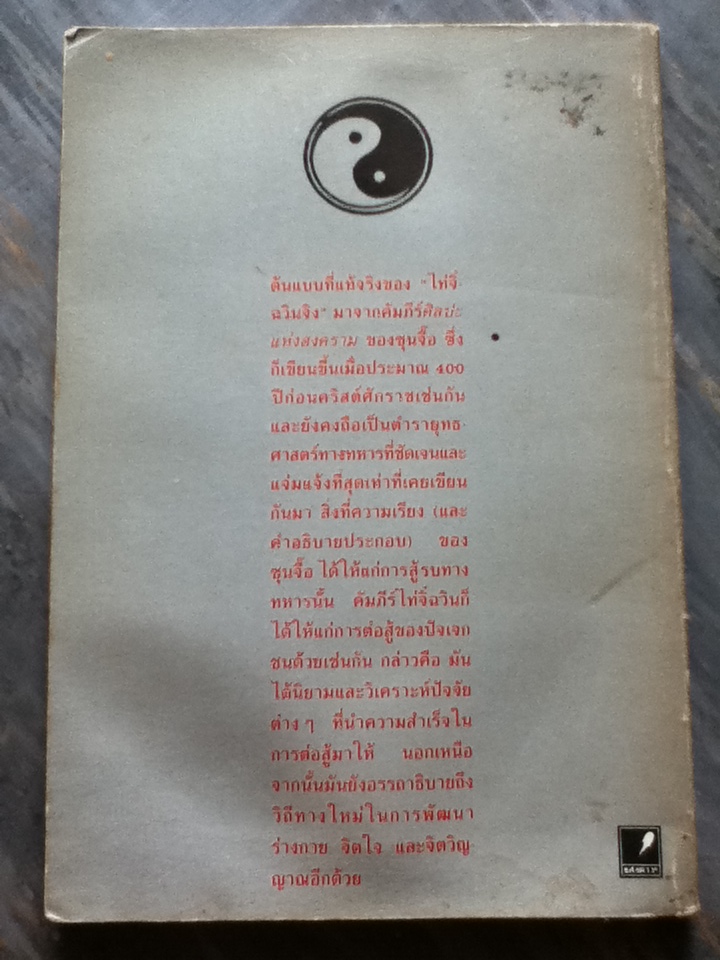 ต้นแบบที่แท้จริงของ "ไท่จิ๋-
ฉวินจิง" มาจากคัมภีร์ศิลปะ
แห่งสงคราม ของซุนจื๊อ ซึ่ง
ก็เขียนขึ้นเมื่อประมาณ 400
ปีก่อนคริสต์ศักราชเช่นกัน
และยังคงถือเป็นตำรายุทธ-
ศาสตร์ทางทหารที่ชัดเจนและ
แจ่มแจ้งที่สุดเท่าที่เคยเขียน
กันมา สิ่งที่ความเรียง (และ
คำอธิบายประกอบ) ของ
ซุนจื๊อ ได้ให้แก่การสู้รบทาง
ทหารนั้น คัมภีร์ไท่จิ๋ฉวินก็
ได้ให้แก่การต่อสู้ของปัจเจก
ชนด้วยเช่นกัน กล่าวคือ มัน
ได้นิยามและวิเคราะห์ปัจจัย
ต่างๆ ที่นำความสำเร็จใน
การต่อสู้มาให้ นอกเหนือ
จากนั้นมันยังอรรถาธิบายถึง
วิถีทางใหม่ในการพัฒนา
ร่างกาย จิตใจ และจิตวิญ-
ญาณอีกด้วย